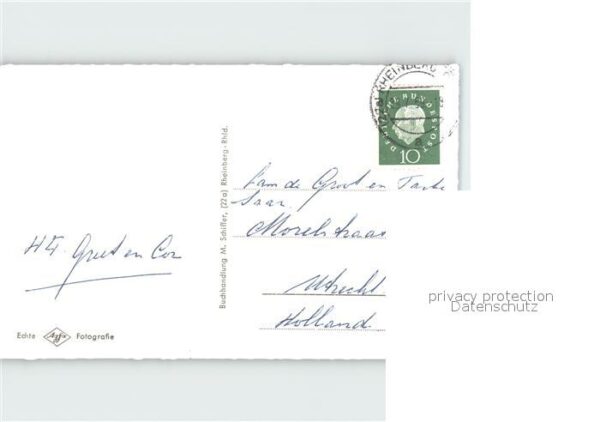 RHEINBERG
DEUTSCHE BUNDESPOST
10
Fam de Groot en Tante
Saar.
Morelstraat
Utrecht
Holland
Hg. Greet en Cor
Buchhandlung M. Schiffer, (22a) Rheinberg-Rhld.
Echte Agfa Fotografie
privacy protection
Datenschutz